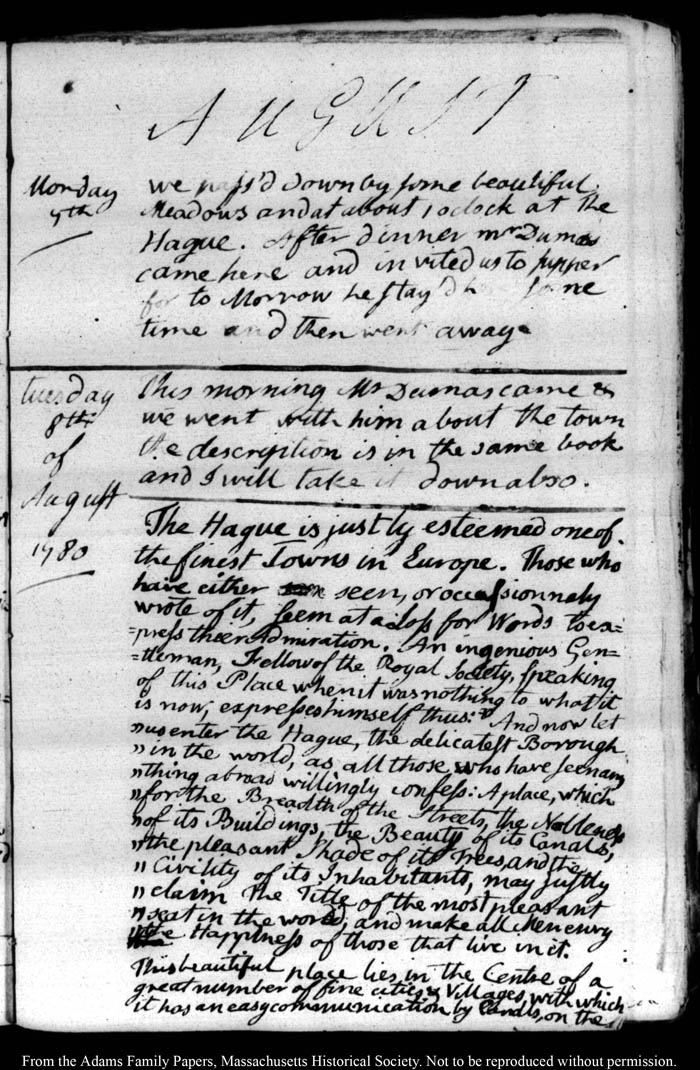 AUGUST
Monday
7th
we pass'd down by some beautiful
Meadows and at about 1 oclock at the
Hague. After dinner mr Dumas
came here and invited us to supper
for to Morrow he stay'd here some
time and then went away.
tuesday
8th
of
August
1780
this morning Mr Dumas came &
we went with him about the town
the description is in the same book
and I will take it down also.
The Hague is justly esteemed one of
the finest Towns in Europe. Those who
have either seen, or occassionnaly
wrote of it, seem at a Loss for Words to ex=
=press theer Admiration. An ingenious Gen=
=tleman, Fellow of the Royal Society, speaking
of this Place when it was nothing to what it
is now, expresses himself thus: " And now let
" us enter the Hague, the delicatest Borough
" in the world, as all those, who have seen any
" thing abroad willingly confess: A place, which
" for the Breadth of the Streets, the Nobleness
" of its Buildings, the Beauty of its Canals,
" the pleasant Shade of its Trees, and the
" Civility of its Inhabitants, may justly
" claim The Title of the most pleasant
" seat in the world, and make all Men envy
the Happiness of those that live in it.
This beautiful place lies in the Centre of a
great number of fine cities & Villages, with which
it has an easy communication by Canals, on the
From the Adams Family Papers, Massachusetts Historical Society. Not to be reproduced without permission.